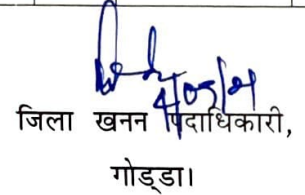 4/05/21
जिला खनन पदाधिकारी,
गोड्डा।